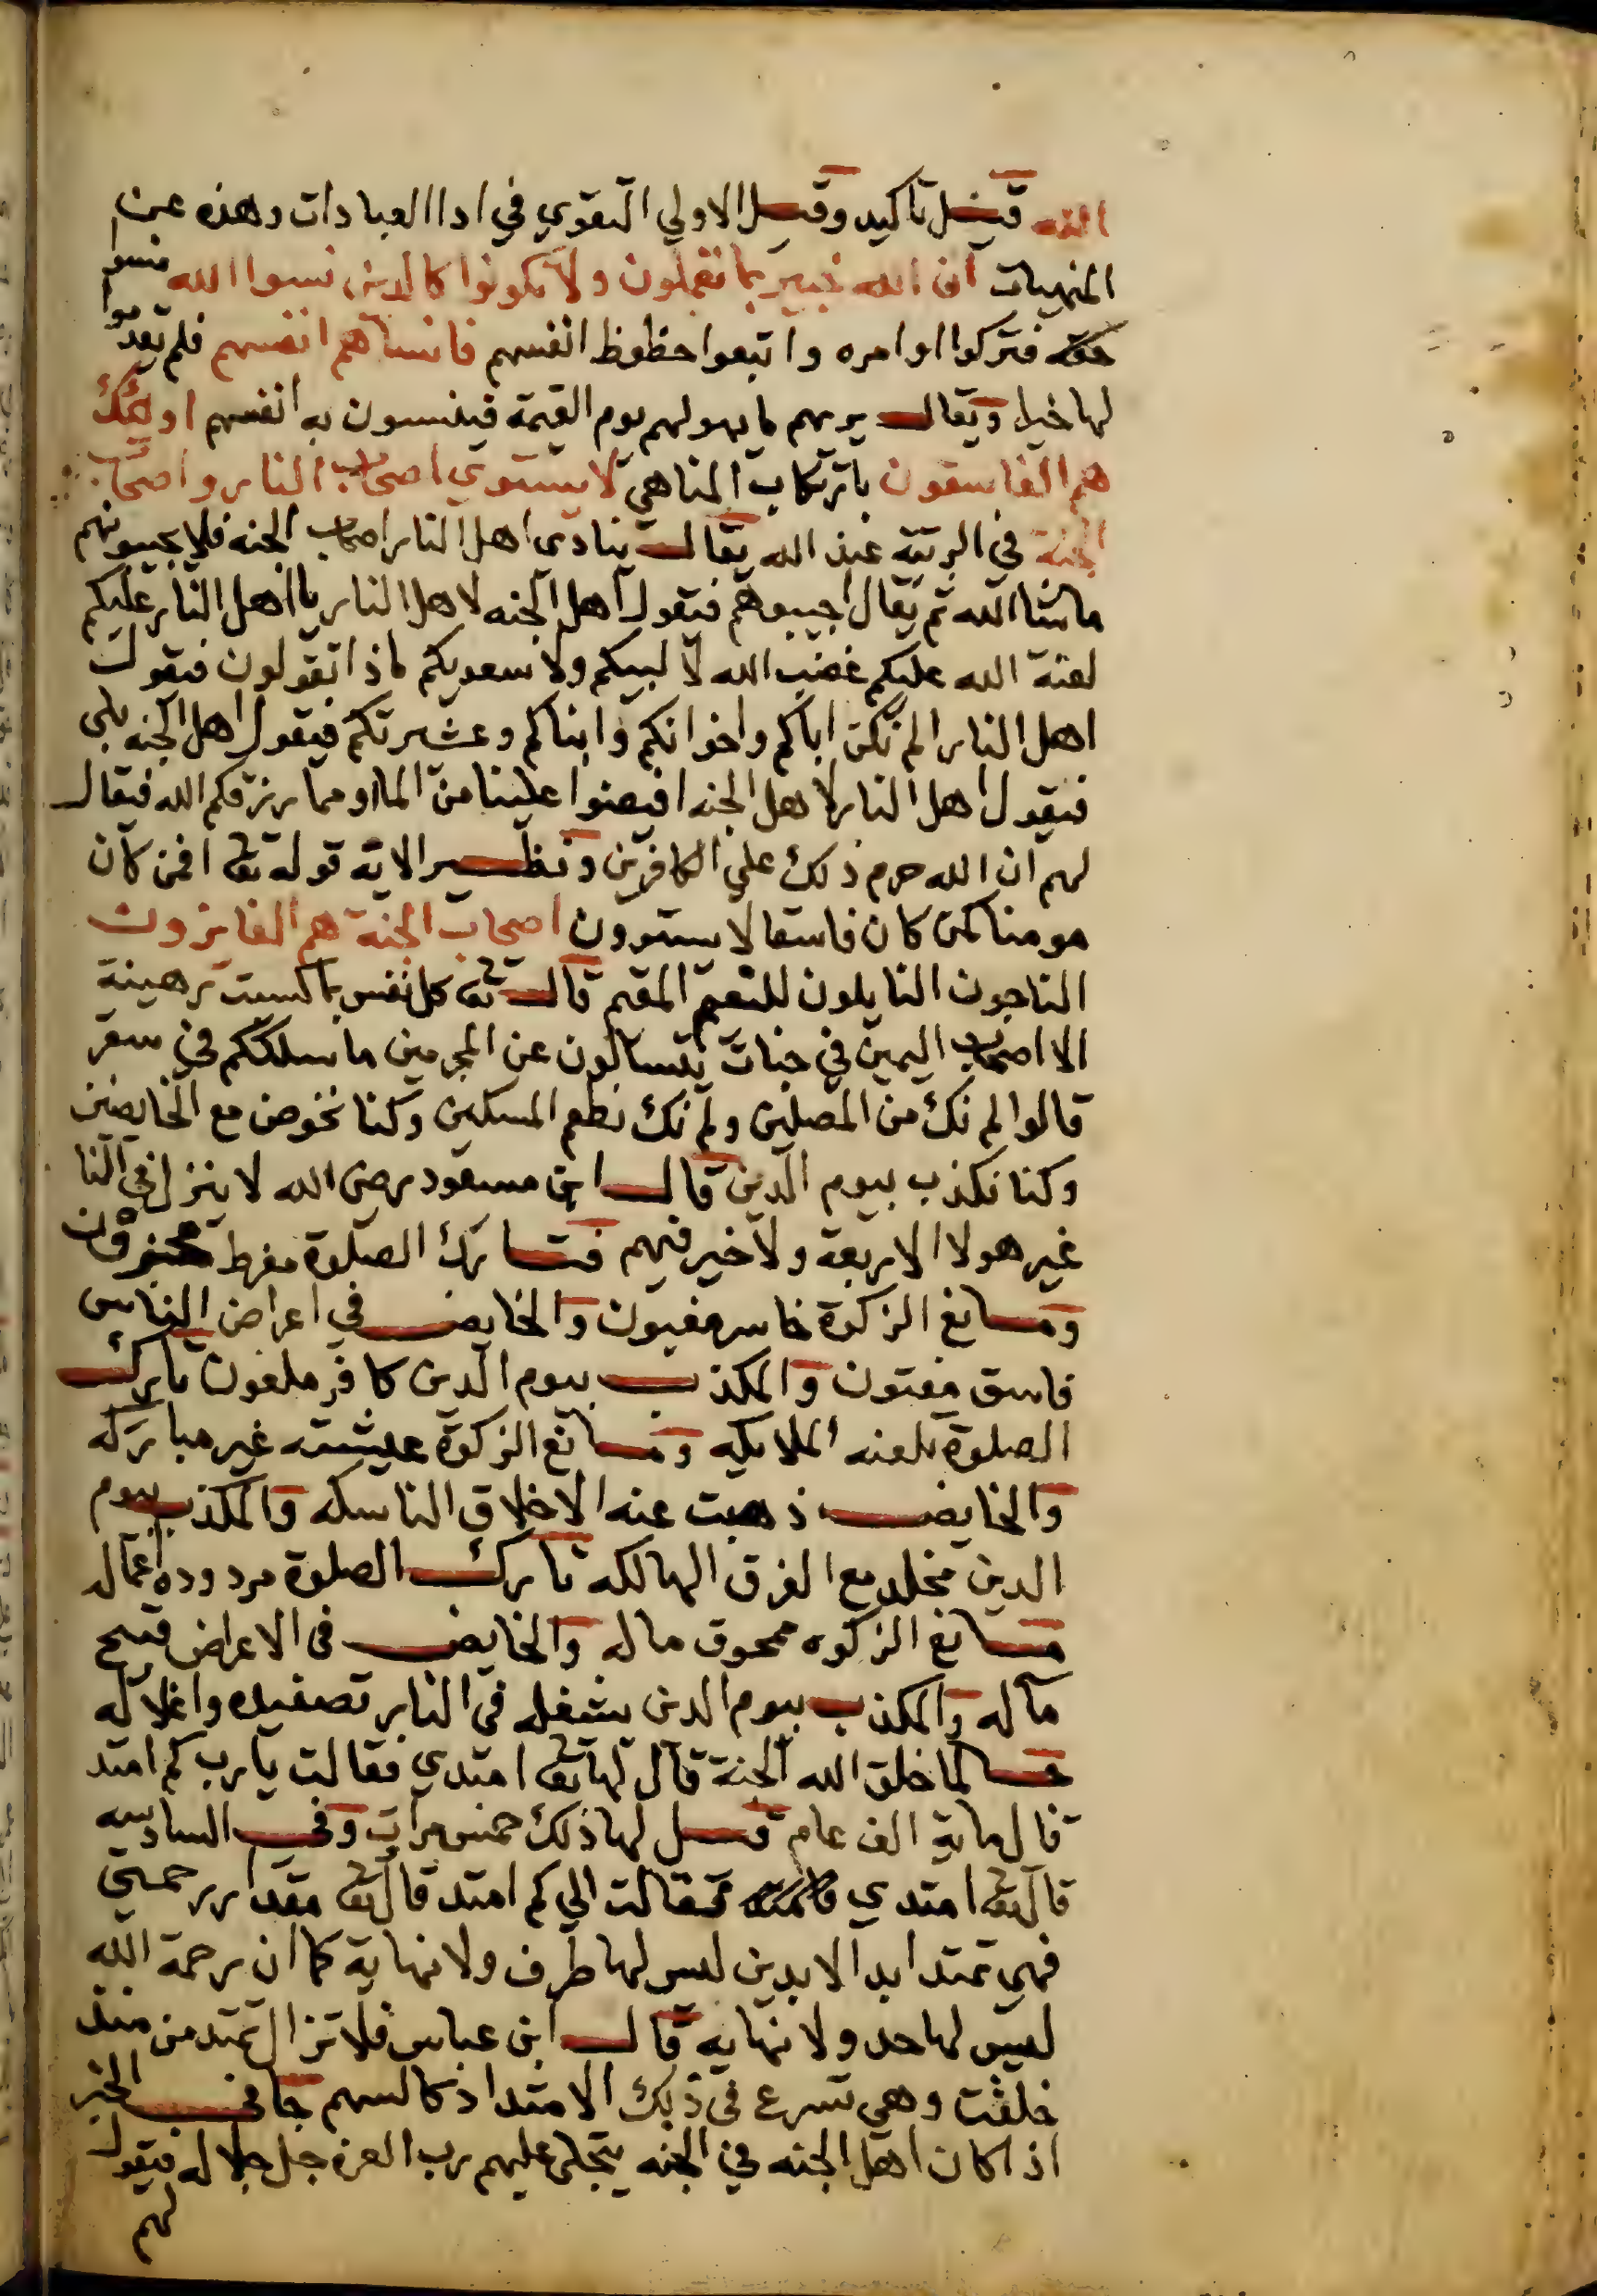 الله قيل تاكيد وقيل الاولي التقوي في ادا العبادات وهذه عن
المنهيات ان الله خبير بما تعملون ولا تكونوا كالدين نسوا الله نسوا
حقه فتركوا اوامره واتبعوا حظوظ انفسهم فانساهم انفسهم فلم يقدموا
لها خيرا ويقال يريهم ما يهولهم يوم القيمة فينسون به انفسهم اولئك
هم الفاسقون بارتكاب المناهي لا يستوي اصحاب النار واصحاب
الجنة في الرتبة عند الله يقال ينادي اهل النار اصحاب الجنه فلا يجيبونهم
ماشا الله ثم يقال اجيبوهم فيقول اهل الجنه لاهل النار يا اهل النار عليكم
لعنة الله عليكم غضب الله لا لبيكم ولا سعديكم ماذا تقولون فيقول
اهل النار الم نكن اباكم واخوانكم وابناكم وعشيرتكم فيقول اهل الجنه بلي
فيقول اهل النار لاهل الجنه افيضوا علينا من الما او مما رزقكم الله فيقال
لهم ان الله حرم ذلك علي الكافرين ونظير الاية قوله تعا افمن كان
مومنا كمن كان فاسقا لا يستوون اصحاب الجنة هم الفايزون
الناجون النايلون للنعيم المقيم قال تعا كل نفس بما كسبت رهينة
الا اصحاب اليمين في جنات يتسالون عن المجرمين ما سلككم في سقر
قالوا لم نك من المصلين ولم نك نطعم المسكين وكنا نخوض مع الخايضين
وكنا نكذب بيوم الدين قال ابن مسعود رضي الله لا ينزل في النا
غير هولا الاربعة ولا خير فيهم فتارك الصلوة مفرط
ومانع الزكوة خاسر مغبون والخايض في اعراض الناس
فاسق مفتون والمكذب بيوم الدين كافر ملعون تارك
الصلوة تلعنه الملايكه ومانع الزكوة عيشته غير مباركه
والخايض ذهبت عنه الاخلاق الناسكه والمكذب بيوم
الدين مخلد مع الفرق الهالكه تارك الصلوة مردوده اعماله
مانع الزكوه ممحوق ماله والخايض في الاعراض قبيح
مآله والمكذب بيوم الدين يشغله في النار تصفيده واغلاله
لما خلق الله الجنة قال لها تعا امتدي فقالت يارب كم امتد
قال ماية الف عام قيل لها ذلك خمس مرات وفي السادسه
قال تعا امتدي فقالت الي كم امتد قال تعا مقدار رحمتي
فهي تمتد ابد الابدين ليس لها طرف ولا نهاية كما ان رحمة الله
ليس لها حد ولا نهايه قال ابن عباس فلا تزال تمتد من منذ
خلقت وهي تسرع في ذلك الامتداد كالسهم جا في الخبر
اذا كان اهل الجنه في الجنه يتجلي عليهم رب العزه جل جلاله فيقول
لهم